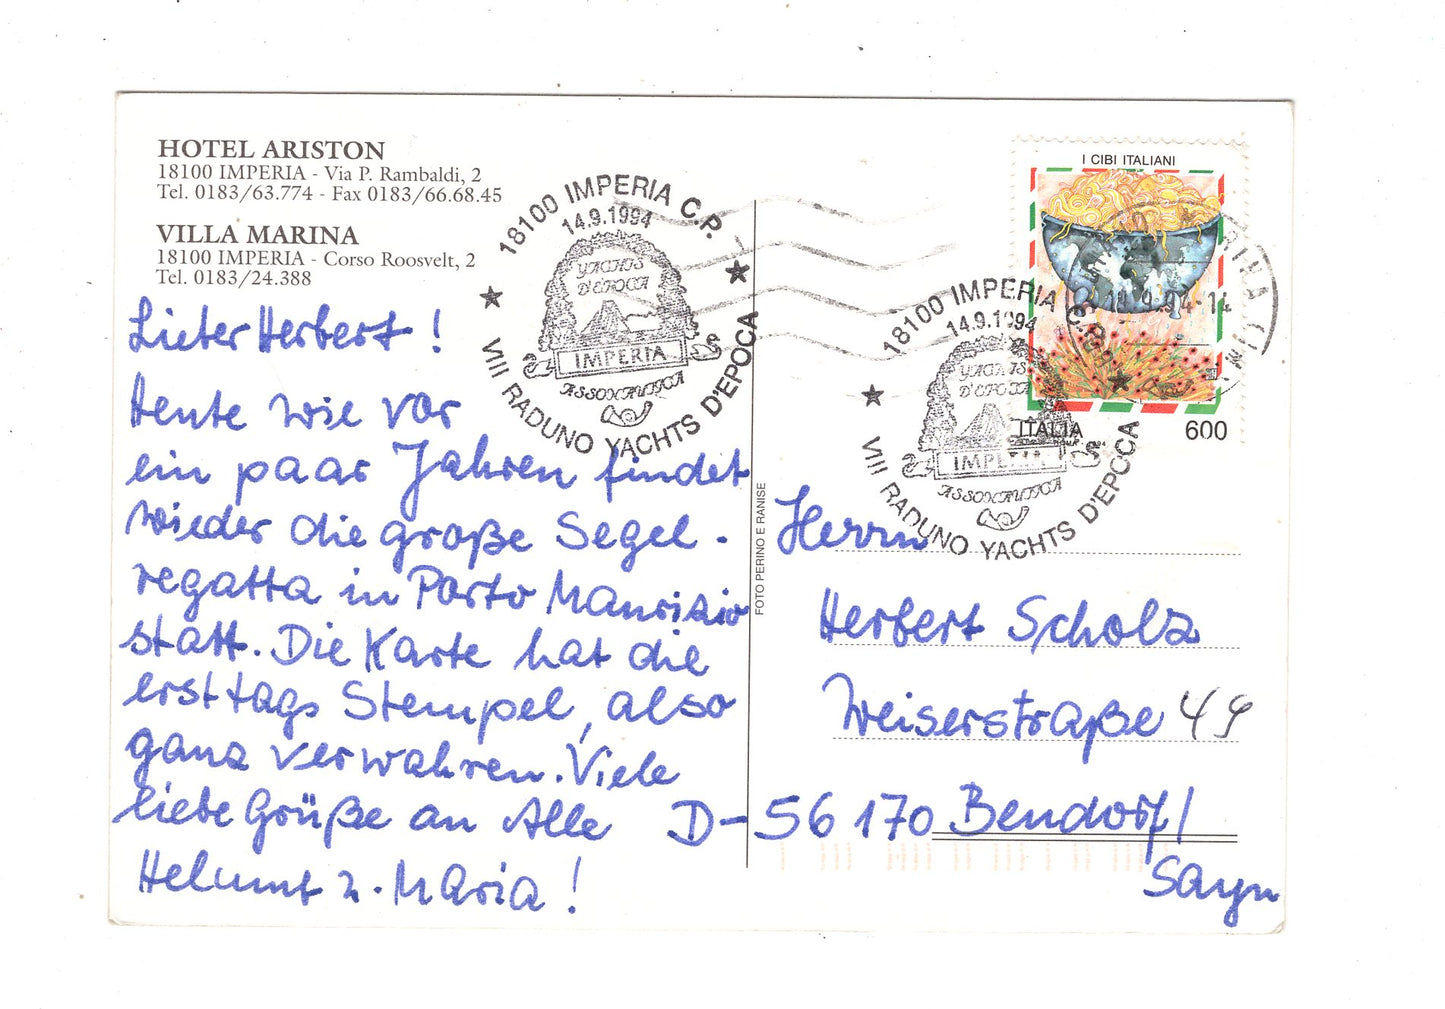 HOTEL ARISTON
18100 IMPERIA - Via P. Rambaldi, 2
Tel. 0183/63.774 - Fax 0183/66.68.45
VILLA MARINA
18100 IMPERIA - Corso Roosvelt, 2
Tel. 0183/24.388
Lieber Herbert!
Heute wie vor
ein paar Jahren findet
wieder die große Segel-
regatta in Porto Maurizio
statt. Die Karte hat die
ersttags Stempel, also
ganz verwahren. Viele
liebe Grüße an Alle
Helmut u. Maria!
18100 IMPERIA C.P.
14.9.1994
YACHTS
D'EPOCA
IMPERIA
ASSONAUTICA
VIII RADUNO YACHTS D'EPOCA
FOTO PERINO E RANISE
I CIBI ITALIANI
ITALIA
600
14.9.94-14
18100 IMPERIA C.P.
14.9.1994
YACHTS
D'EPOCA
IMPERIA
ASSONAUTICA
VIII RADUNO YACHTS D'EPOCA
Herrn
Herbert Scholz
Weiserstraße 49
D-56170 Bendorf/
Sayn